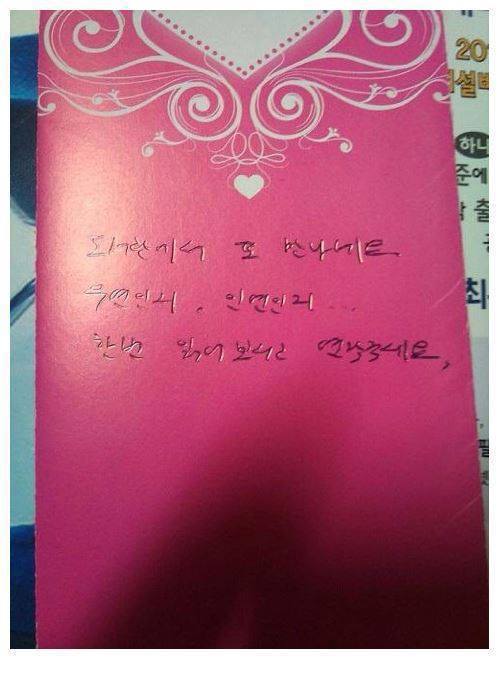 도서관에서 또 만나네요
우연인지, 인연인지...
한번 읽어보시고 연락주세요,
20
설비
하나
준에
출
최